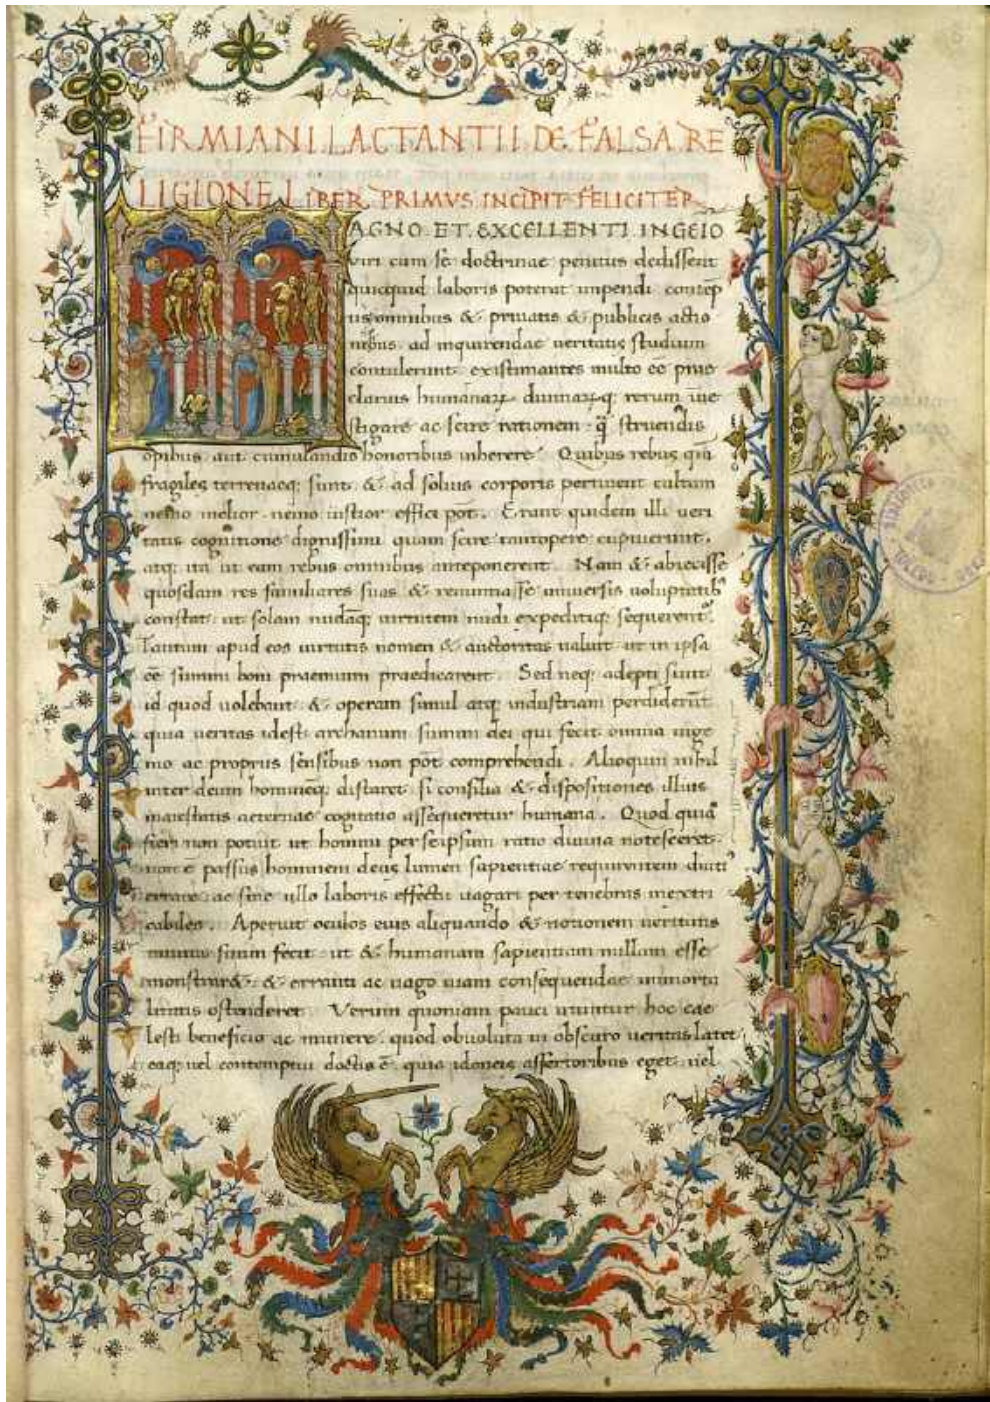 FIRMIANI LACTANTII DE FALSA RE
LIGIONE LIBER PRIMVS INCIPIT FELICITER
AGNO ET EXCELLENTI INGEIO
viri cum se doctrinae penitus dedissent
quicquid laboris poterat impendi contep
tis omnibus & privatis & publicis actio
nibus ad inquirendae veritatis studium
contulerunt existimantes multo eē prae
clarius humanaꝝ divinaꝝq; rerum īve
stigare ac scire rationem q̄ struendis
opibus aut cumulandis honoribus inherere Quibus rebus qm̄
fragiles terrenaeq; sunt & ad solius corporis pertinent cultum
nemo melior nemo iustior effici pōt. Erant quidem illi veri
tatis cognitione dignissimi quam scire tantopere cupiverunt.
atq; ita ut eam rebus omnibus anteponerent Nam & abiecisse
quosdam res familiares suas & renuntiasse universis voluptatib
constat ut solam nudāq; virtutem nudi expeditiq; sequerent
Tantum apud eos virtutis nomen & auctoritas valuit ut in ipsa
eē summi boni praemium praedicarent Sed neq; adepti sunt
id quod volebant & operam simul atq; industriam perdiderūt
quia veritas idest archanum summi dei qui fecit omnia inge
nio ac propriis sensibus non pōt comprehendi. Alioquin nihil
inter deum hominēq; distaret si consilia & dispositiones illius
maiestatis aeternae cogitatio assequeretur humana. Quod quia
fieri non potuit ut homini per seipsum ratio divina notesceret
non ē passus hominem deus lumen sapientiae requirentem diuti
errare ac sine ullo laboris effectu vagari per tenebras inextri
cabiles. Aperuit oculos eius aliquando & notionem veritatis
munus suum fecit ut & humanam sapientiam nullam esse
monstrar& & erranti ac vago viam consequendae immorta
litatis ostenderet Verum quoniam pauci utuntur hoc cae
lesti beneficio ac munere quod obvoluta in obscuro veritas latet
eaq; vel contemptui doctis ē quia idoneis assertoribus eget vel